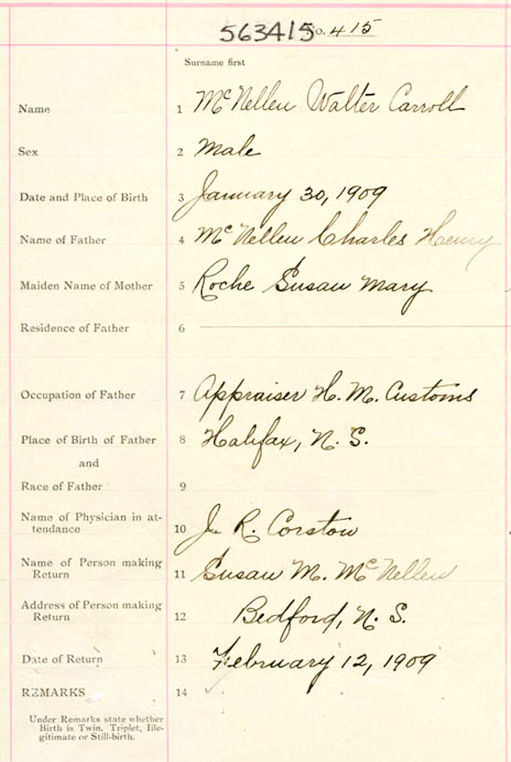 563415 No. 415
Surname first
Name 1 McNellen Walter Carroll
Sex 2 Male
Date and Place of Birth 3 January 30, 1909
Name of Father 4 McNellen Charles Henry
Maiden Name of Mother 5 Roche Susan Mary
Residence of Father 6
Occupation of Father 7 Appraiser H. M. Customs
Place of Birth of Father 8 Halifax, N. S.
and
Race of Father 9
Name of Physician in at-
tendance 10 J. R. Corston
Name of Person making
Return 11 Susan M. McNellen
Address of Person making
Return 12 Bedford, N. S.
Date of Return 13 February 12, 1909
REMARKS 14
Under Remarks state whether
Birth is Twin, Triplet, Ille-
gitimate or Still-birth.